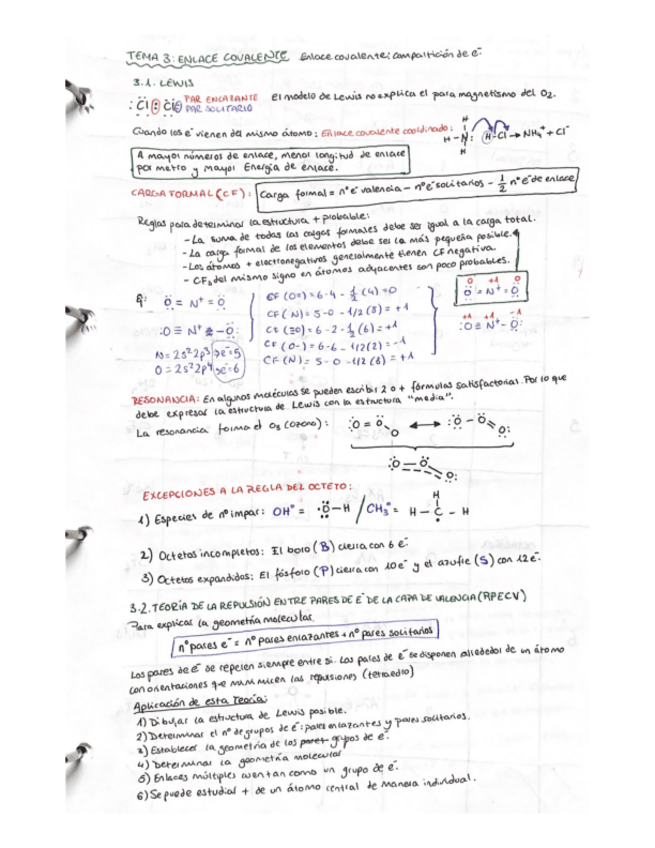 TEMA 3: ENLACE COVALENTE Enlace covalente: compartición de e⁻
3.1. LEWIS
:Cl:Cl: PAR ENLAZANTE PAR SOLITARIO El modelo de Lewis no explica el paramagnetismo del O₂.
Cuando los e⁻ vienen del mismo átomo: Enlace covalente coordinado: H-N: H-Cl → NH₄⁺ + Cl⁻
A mayor números de enlace, menor longitud de enlace
por metro y mayor Energía de enlace.
CARGA FORMAL (CF): Carga formal = nº e⁻ valencia - nº e⁻ solitarios - 1/2 nº e⁻ de enlace
Reglas para determinar la estructura + probable:
- La suma de todas las cargas formales debe ser igual a la carga total.
- La carga formal de los elementos debe ser la más pequeña posible.
- Los átomos + electronegativos generalmente tienen CF negativa.
- CF del mismo signo en átomos adyacentes son poco probables.
Ej: Ö = N⁺ = Ö CF (O=) = 6 - 4 - 1/2 (4) = 0 0 +1 0 Ö = N⁺ = Ö
CF (N) = 5 - 0 - 1/2 (8) = +1
:O ≡ N⁺ - Ö: CF (≡O) = 6 - 2 - 1/2 (6) = +1 +1 +1 -1 :O ≡ N⁺ - Ö:
N = 2s² 2p³ 5e⁻ = 5 CF (O-) = 6 - 6 - 1/2 (2) = -1
O = 2s² 2p⁴ e⁻ = 6 CF (N) = 5 - 0 - 1/2 (8) = +1
RESONANCIA: En algunas moléculas se pueden escribir 2 o + fórmulas satisfactorias. Por lo que
debe expresar la estructura de Lewis con la estructura "media".
La resonancia forma el O₃ (ozono): :O = Ö - O ↔ :Ö - Ö = O:
:O - Ö - O:
EXCEPCIONES A LA REGLA DEL OCTETO:
1) Especies de nº impar: OH° = ·Ö - H / CH₃° = H - C - H
H
2) Octetos incompletos: El boro (B) cierra con 6 e⁻.
3) Octetos expandidos: El fósforo (P) cierra con 10 e⁻ y el azufre (S) con 12 e⁻.
3.2. TEORÍA DE LA REPULSIÓN ENTRE PARES DE E⁻ DE LA CAPA DE VALENCIA (RPECV)
Para explicar la geometría molecular.
nº pares e⁻ = nº pares enlazantes + nº pares solitarios
Los pares de e⁻ se repelen siempre entre sí. Los pares de e⁻ se disponen alrededor de un átomo
con orientaciones que minimicen las repulsiones (tetraedro)
Aplicación de esta Teoría:
1) Dibujar la estructura de Lewis posible.
2) Determinar el nº de grupos de e⁻: pares enlazantes y pares solitarios.
3) Establecer la geometría de los grupos de e⁻.
4) Determinar la geometría molecular
5) Enlaces múltiples cuentan como un grupo de e⁻.
6) Se puede estudiar + de un átomo central de manera individual.